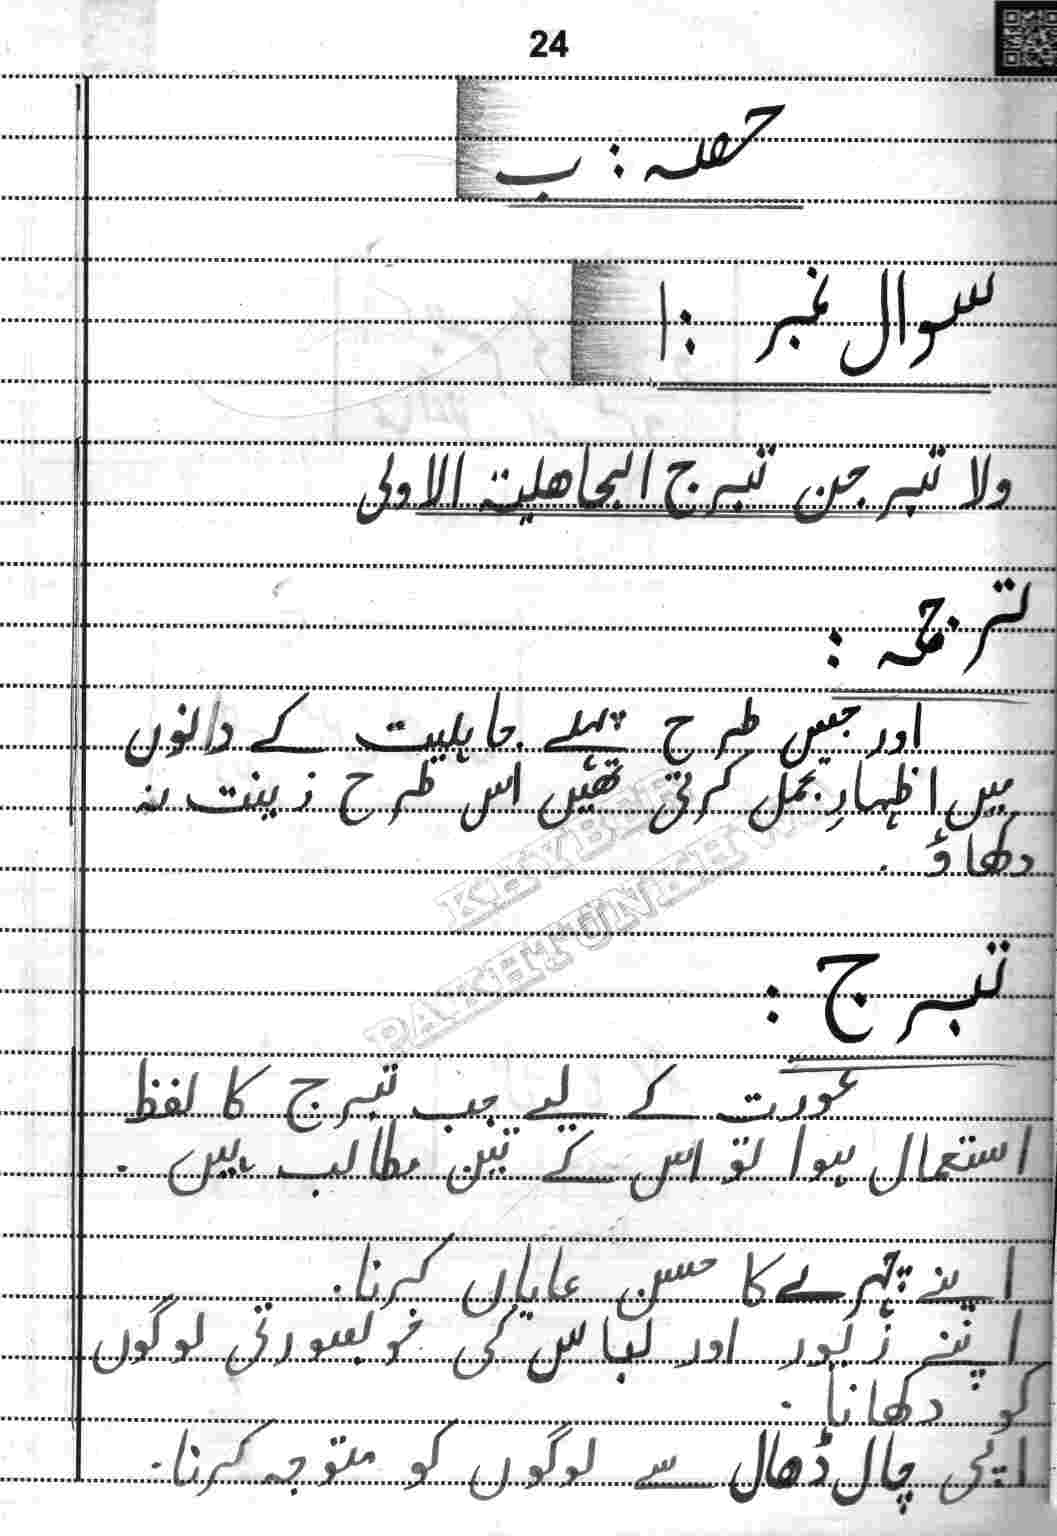 24
حصہ : ب
سوال نمبر : 1
ولا تبرجن تبرج الجاھلیتہ الاولی
ترجمہ :
اور جس طرح پہلے جاہلیت کے دانوں
میں اظہارِ تجمل کرتی تھیں اس طرح زینت نہ
دکھاؤ .
تبرج :
عورت کے لیے جب تبرج کا لفظ
استعمال ہوا تو اس کے تین مطالب ہیں .
اپنے چہرے کا حسن عایاں کرنا .
اپنے زیور اور لباس کی خوبصورتی لوگوں
کو دکھانا .
اپنی چال ڈھال سے لوگوں کو متوجہ کرنا .
KHYBER
PAKHTUNKHWA